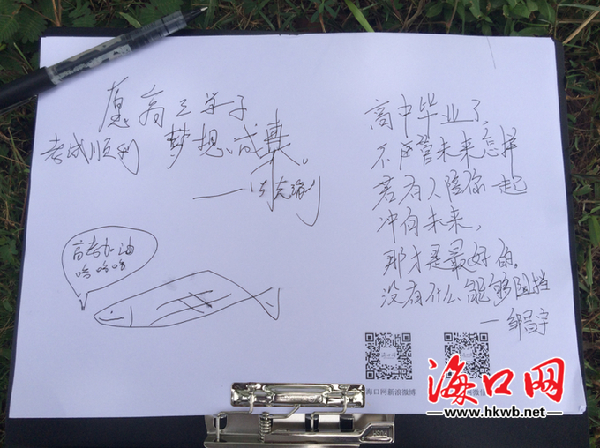 愿高三学子
考试顺利 梦想成真。
高考加油
哈哈哈
高中毕业了,
不管未来怎样
若有人陪你一起
冲向未来,
那才是最好的,
没有什么能够阻挡
海口网新浪微博
海口网
www.hkwb.net